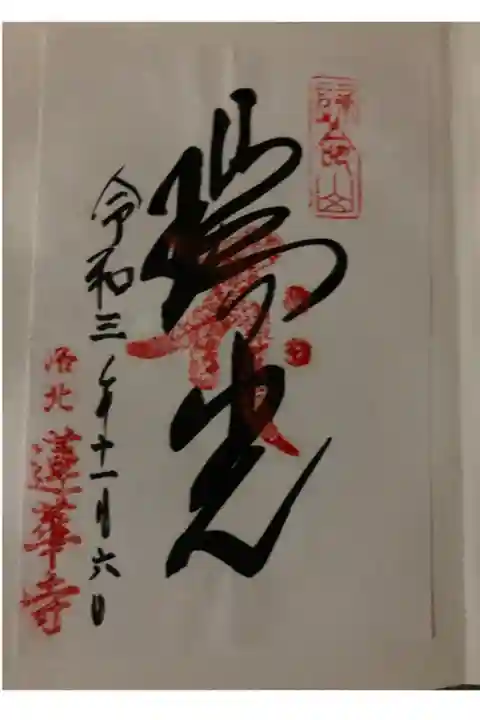 瑞光
令和三年十一月六日
洛北
蓮華寺